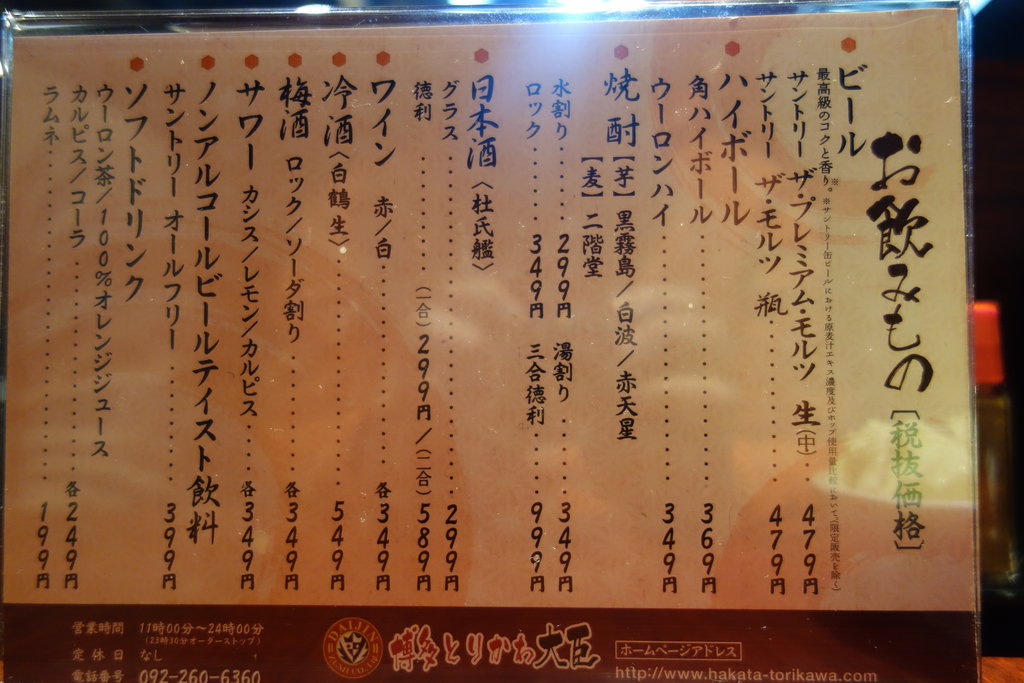 お飲みもの［税抜価格］
ビール
最高級のコクと香り。※
※サントリー缶ビールにおける原麦汁エキス濃度及びホップ使用量比較において。(限定販売を除く)
サントリー ザ・プレミアム・モルツ 生(中)‥479円
サントリー ザ・モルツ 瓶‥‥‥‥479円
ハイボール
角ハイボール‥‥‥‥369円
ウーロンハイ‥‥‥‥349円
焼酎【芋】黒霧島/白波/赤天星
【麦】二階堂
水割り‥‥299円 湯割り‥‥349円
ロック‥‥349円 三合徳利‥‥999円
日本酒〈杜氏艦〉
グラス‥‥‥‥299円
徳利‥‥‥‥(一合)299円/(二合)589円
ワイン 赤/白‥‥‥‥各349円
冷酒〈白鶴 生〉‥‥‥‥549円
梅酒 ロック/ソーダ割り‥‥‥‥各349円
サワー カシス/レモン/カルピス‥‥各349円
ノンアルコールビールテイスト飲料
サントリー オールフリー‥‥‥‥399円
ソフトドリンク
ウーロン茶/100%オレンジジュース
カルピス/コーラ‥‥‥‥各249円
ラムネ‥‥‥‥199円
営業時間 11時00分～24時00分
(23時30分オーダーストップ)
定休日 なし
電話番号 092-260-6360
DAIJIN
博多とりかわ大臣
ホームページアドレス
http://www.hakata-torikawa.com